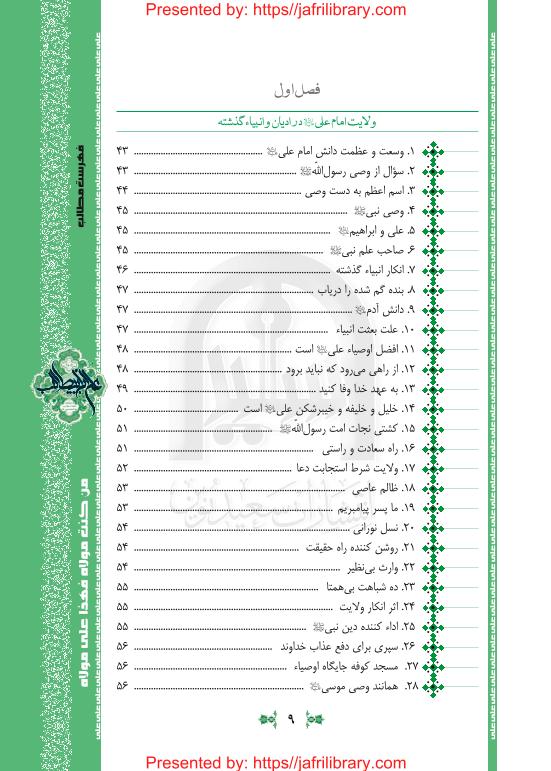 Presented by: https://jafrilibrary.com
فصل اول
ولایت امام علی﷼ در ادیان و انبیاء گذشته
۱. وسعت و عظمت دانش امام علی ........ ۴۳
۲. سؤال از وصی رسول‌الله ........ ۴۳
۳. اسم اعظم به دست وصی ........ ۴۴
۴. وصی نبی ........ ۴۵
۵. علی و ابراهیم ........ ۴۵
۶. صاحب علم نبی ........ ۴۵
۷. انکار انبیاء گذشته ........ ۴۶
۸. بنده گم شده را دریاب ........ ۴۷
۹. دانش آدم ........ ۴۷
۱۰. علت بعثت انبیاء ........ ۴۷
۱۱. افضل اوصیاء علی است ........ ۴۸
۱۲. از راهی می‌رود که نباید برود ........ ۴۸
۱۳. به عهد خدا وفا کنید ........ ۴۹
۱۴. خلیل و خلیفه و خیبرشکن علی است ........ ۵۰
۱۵. کشتی نجات امت رسول‌الله ........ ۵۱
۱۶. راه سعادت و راستی ........ ۵۱
۱۷. ولایت شرط استجابت دعا ........ ۵۲
۱۸. ظالم عاصی ........ ۵۳
۱۹. ما پسر پیامبریم ........ ۵۳
۲۰. نسل نورانی ........ ۵۴
۲۱. روشن کننده راه حقیقت ........ ۵۴
۲۲. وارث بی‌نظیر ........ ۵۴
۲۳. ده شباهت بی‌همتا ........ ۵۵
۲۴. اثر انکار ولایت ........ ۵۵
۲۵. اداء کننده دین نبی ........ ۵۵
۲۶. سپری برای دفع عذاب خداوند ........ ۵۶
۲۷. مسجد کوفه جایگاه اوصیاء ........ ۵۶
۲۸. همانند وصی موسی ........ ۵۶
۹
فهرست مطالب
من کنت مولاه فهذا علی مولاه
انتشارات سعید نوین
Presented by: https://jafrilibrary.com